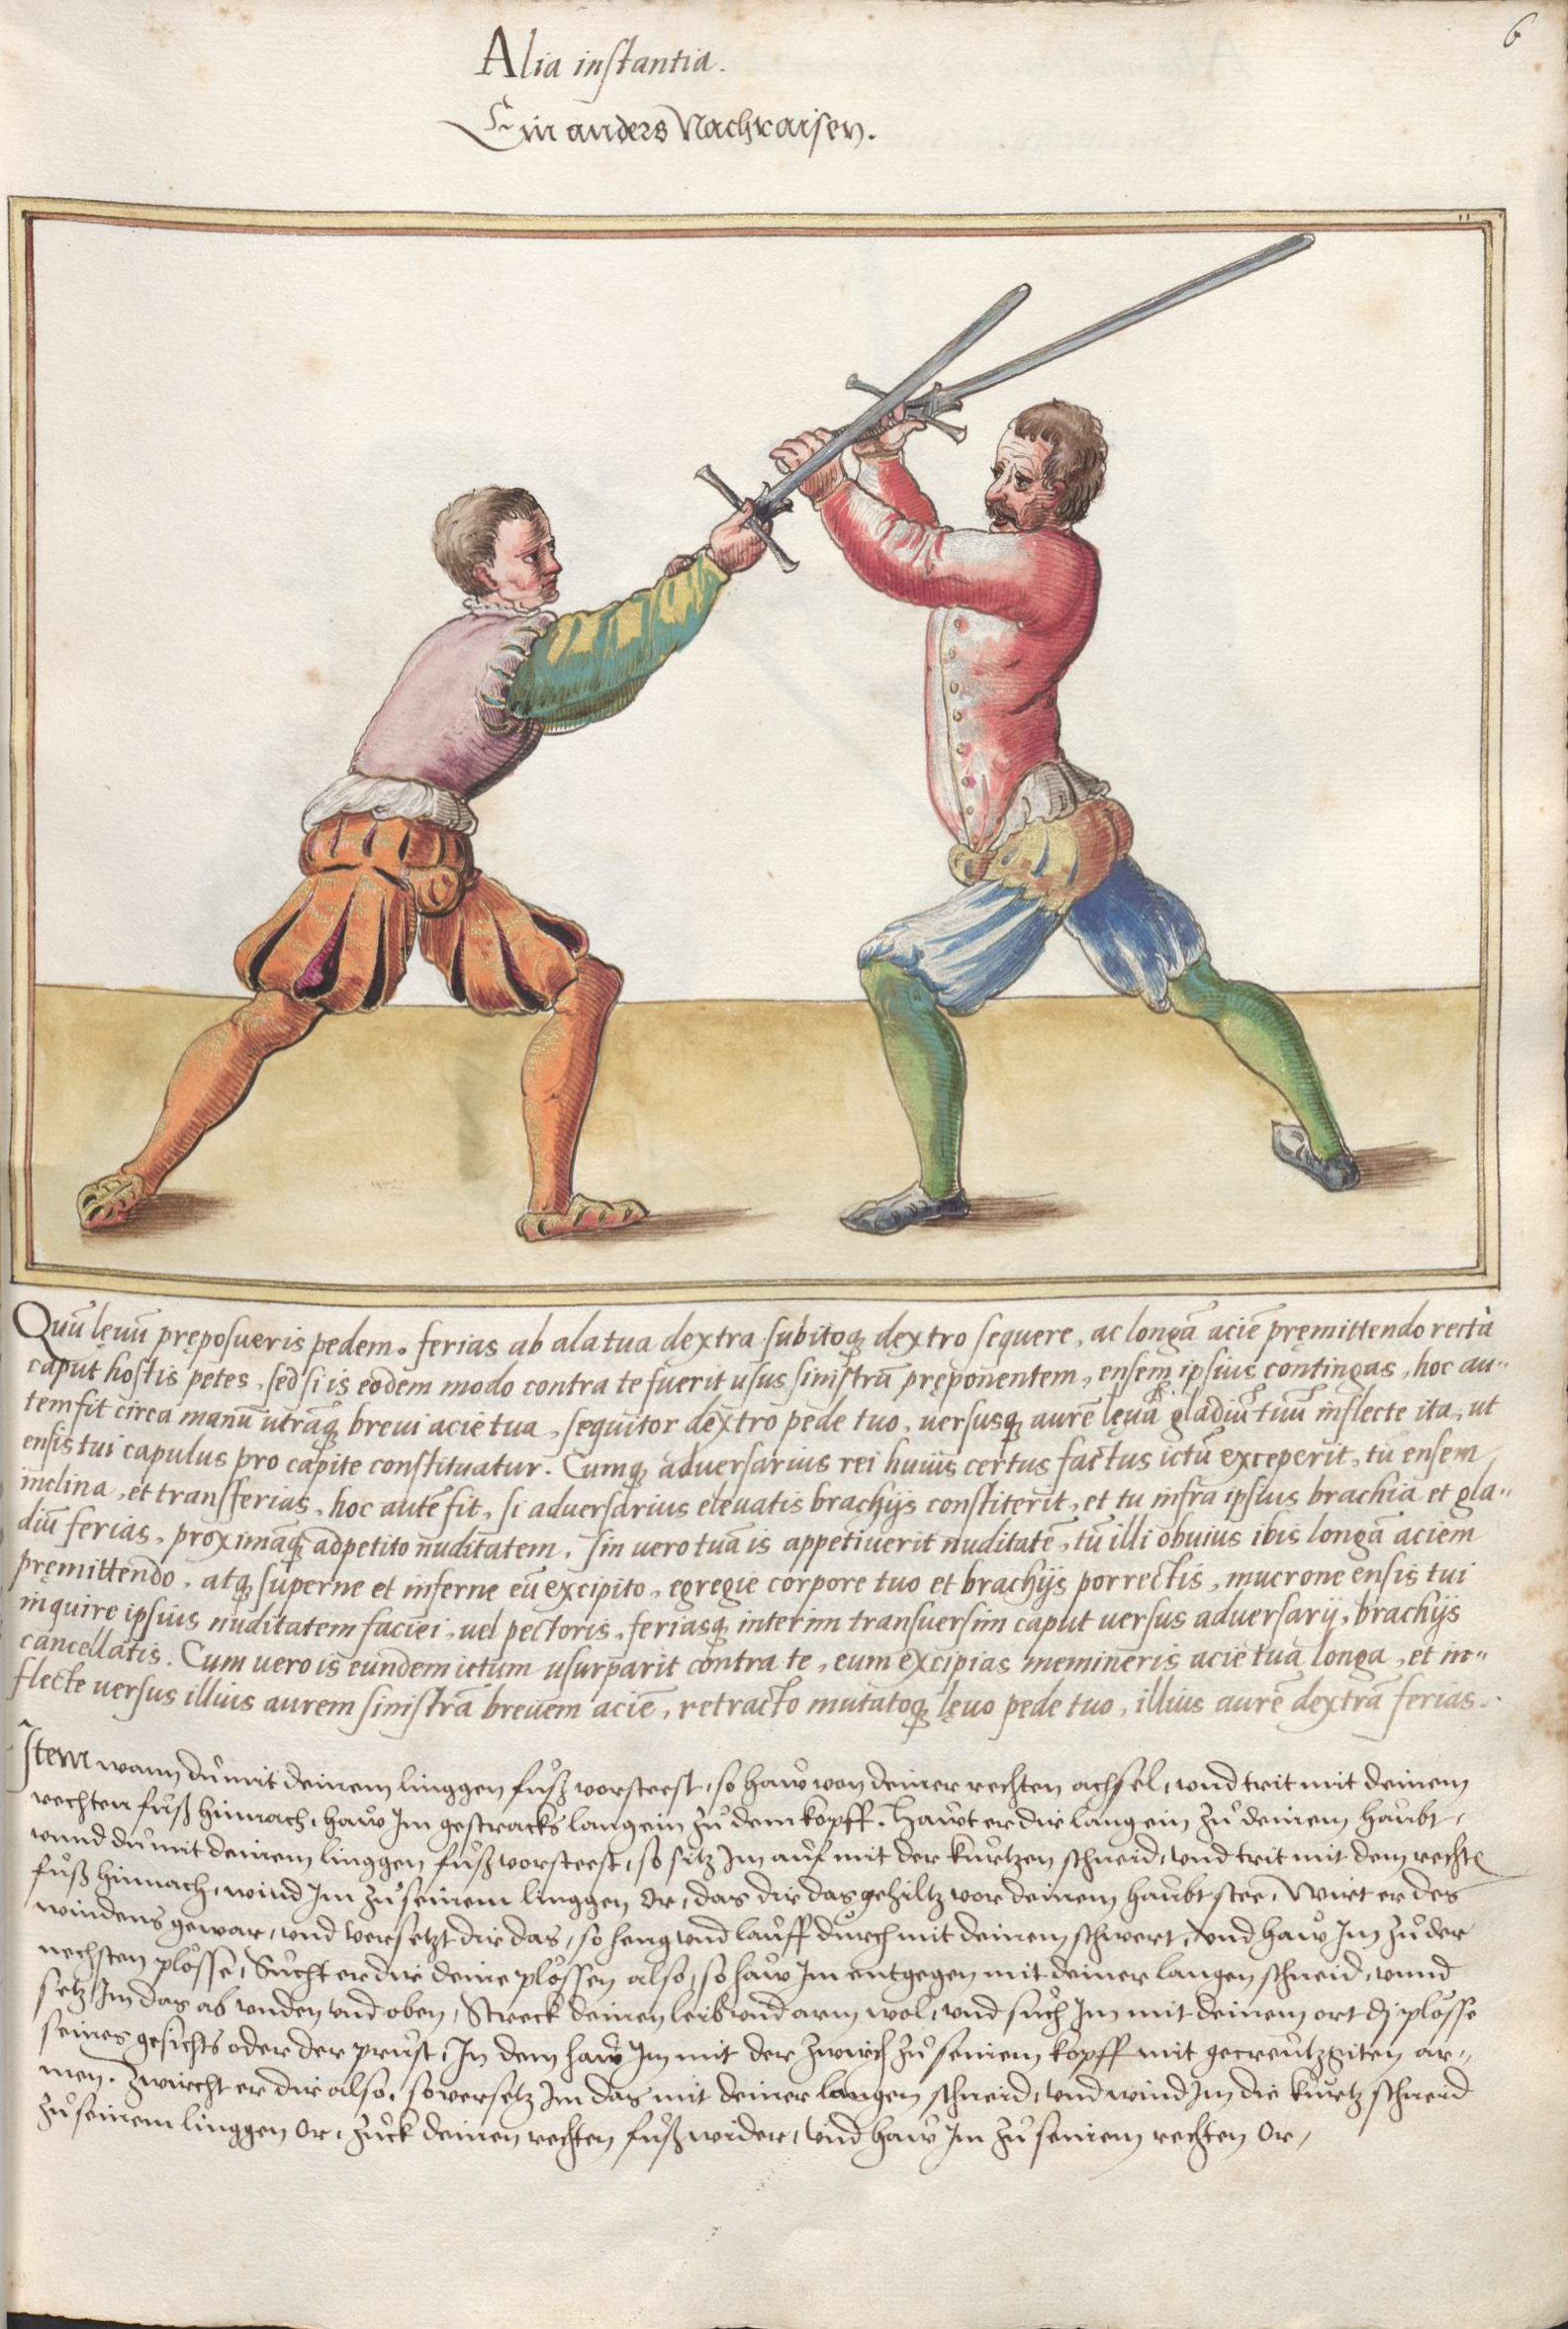 6
Alia instantia.
Ein anders Nachraisen.
Quū lęuū pręposueris pedem. ferias ab ala tua dextra subitoq; dextro sequere, ac longā aciē pręmittendo rectà
caput hostis petes, sed si is eodem modo contra te fuerit usus sinistrū pręponentem, ensem ipsius contingas, hoc au-
tem fit circa manū utrāq; breui acie tua, sequitor dextro pede tuo, uersusq; aurē lęuā gladiū tuū inflecte ita, ut
ensis tui capulus pro capite constituatur. Cumq; aduersarius rei huius certus factus ictū exceperit, tu ensem
inclina, et transferias, hoc autē fit, si aduersarius eleuatis brachijs constiterit, et tu infra ipsius brachia et gla-
diū ferias, proximāq; adpetito nuditatem. Sin uero tuā is appetiuerit nuditatē, tū illi obuius ibis longā aciem
pręmittendo, atq; superne et inferne eū excipito, egregie corpore tuo et brachijs porrectis, mucrone ensis tui
inquire ipsius nuditatem faciei, uel pectoris, feriasq; interim transuersim caput uersus aduersarij, brachijs
cancellatis. Cum uero is eundem ictum usurparit contra te, eum excipias memineris acie tua longa, et in-
flecte uersus illius aurem sinistrā breuem aciē, retracto mutatoq; lęuo pede tuo, illius aurē dextrā ferias.
Item wann dů mit deinem linggen fůß vorsteest, so haw von deiner rechten achsel, vnd trit mit deinem
rechten fůß hinnach, haw Im gestracks lang ein zů dem kopff. Hawt er dir lang ein zů deinem haubt,
vnnd dů mit deinem linggen fůß vorsteest, so sitz Im auf mit der kurtzen schneid, vnd trit mit dem rechtē
fůß hinnach, wind Im zů seinem linggen Or, das dir das gehiltz vor deinem haubt stee, Wirt er des
windens gewar, vnd versetzt dir das, so heng vnd lauff durch mit deinem schwert, vnd haw Im zů der
nechsten plösse, Sücht er dir deine plössen also, so haw Im entgegen mit deiner langen schneid, vnnd
setz Im das ab vnden vnd oben, Streck deinen leib vnd arm wol, vnd such Im mit deinem ort dj plösse
seines gesichts oder der prust, In dem haw Im mit der zwirch zů seinem kopff mit gecreützgiten ar-
men. Zwircht er dir also, so versetz Im das mit deiner langen schneid, vnd wind Im die kurtz schneid
zů seinem linggen Or, zuck deinen rechten fůß wider, vnd haw Im zů seinem rechten Or,